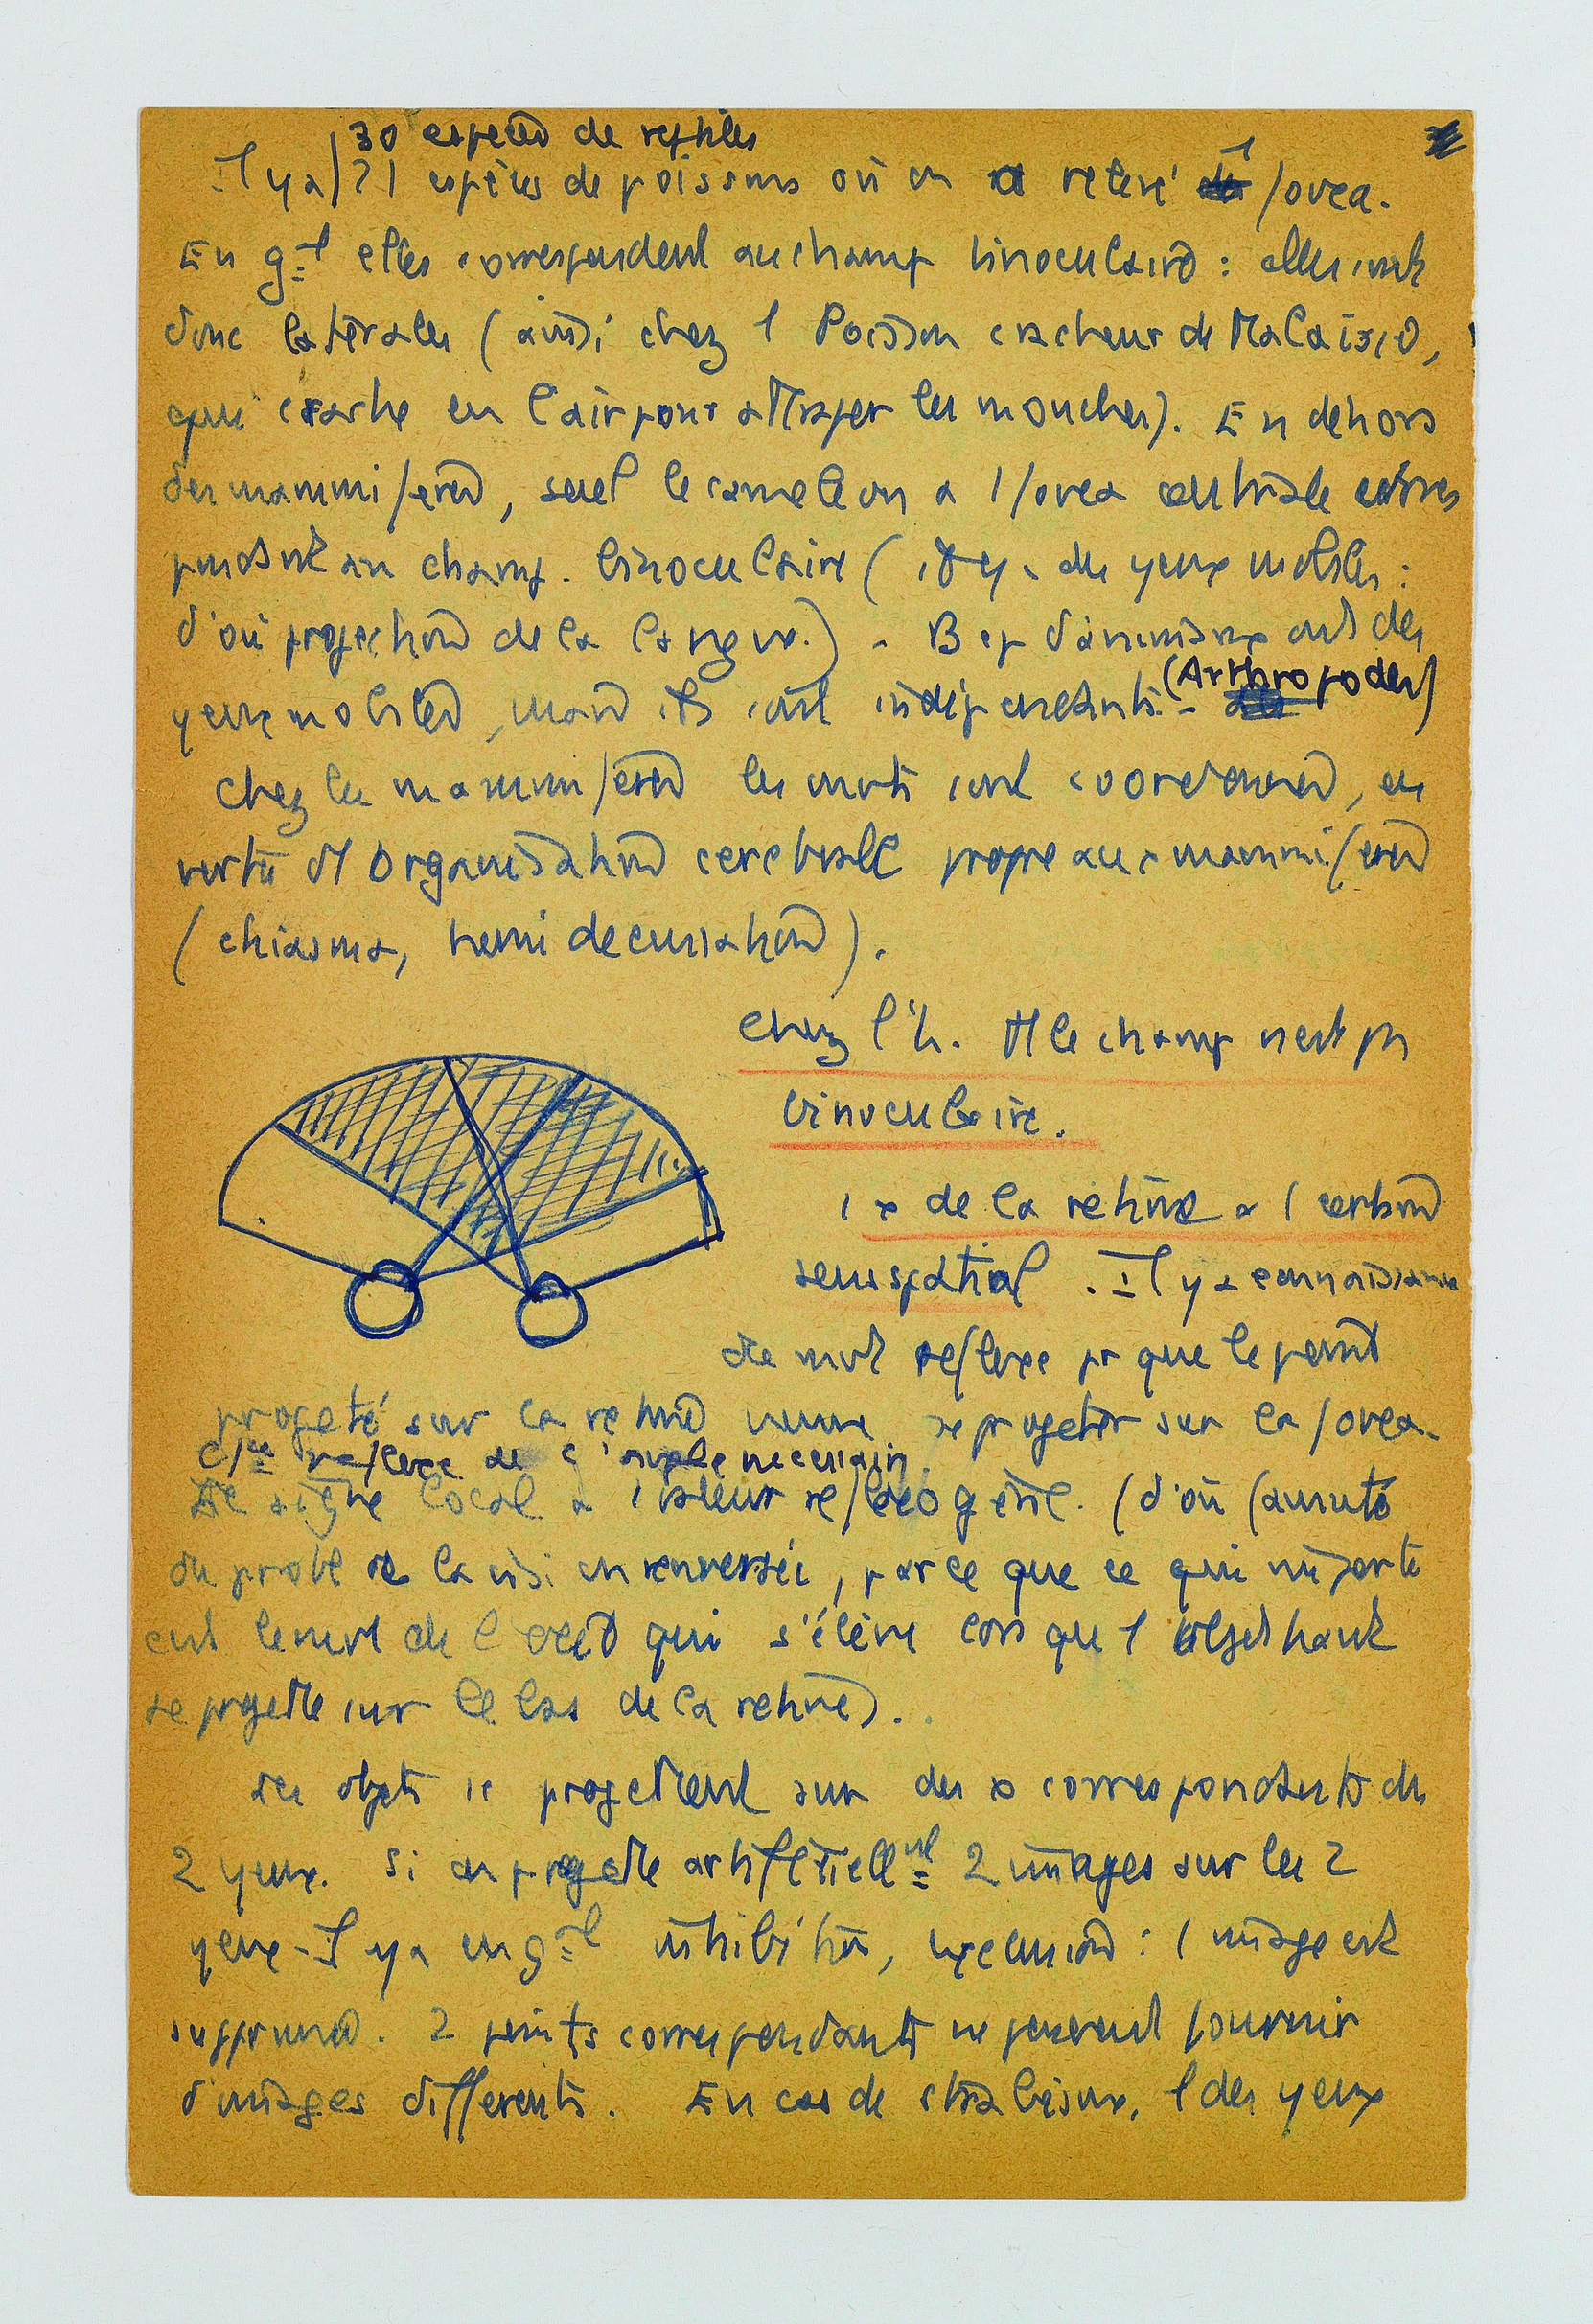 30 espèces de reptiles
Il y a 21 espèces de poissons où on a relevé 1 fovea.
En gal elles correspondent au champ binoculaire : elles sont
donc latérales (ainsi chez 1 Poisson cracheur de Malaisie,
qui crache en l'air pour attraper les mouches). En dehors
des mammifères, seul le caméléon a 1 fovea centrale corres
pondant au champ. binoculaire ( il y a des yeux mobiles :
d'où projection de la langue.) - Bcp d'animaux ont des
yeux mobiles, mais ils sont indépendants. - (Arthropodes)
chez les mammifères les mvts sont coordonnés, en
vertu d'1 organisation cérébrale propre aux mammifères
(chiasma, hemi decussation).
Chez l'h. tt le champ n'est pas
binoculaire.
1 x de la rétine a 1 certain
sens spatial. Il y a connaissance
du mvt reflexe pr que le point
projeté sur la rétine vienne se projeter sur la fovea.
reflexe de l'angle necessaire
Le signe local a 1 valeur reflexogène. (d'où fausseté
du probl de la vision renversée, parce que ce qui importe
c'est le mvt de l'oeil qui s'élève lorsque 1 objet haut
se projette sur le bas de la retine).
Les objets se projettent sur des x correspondants des
2 yeux. Si on projette artificiellnt 2 images sur les 2
yeux - Il y a en gal inhibition, exclusion : 1 image est
supprimée. 2 points correspondants ne peuvent fournir
d'images différents. En cas de strabisme, 1 des yeux